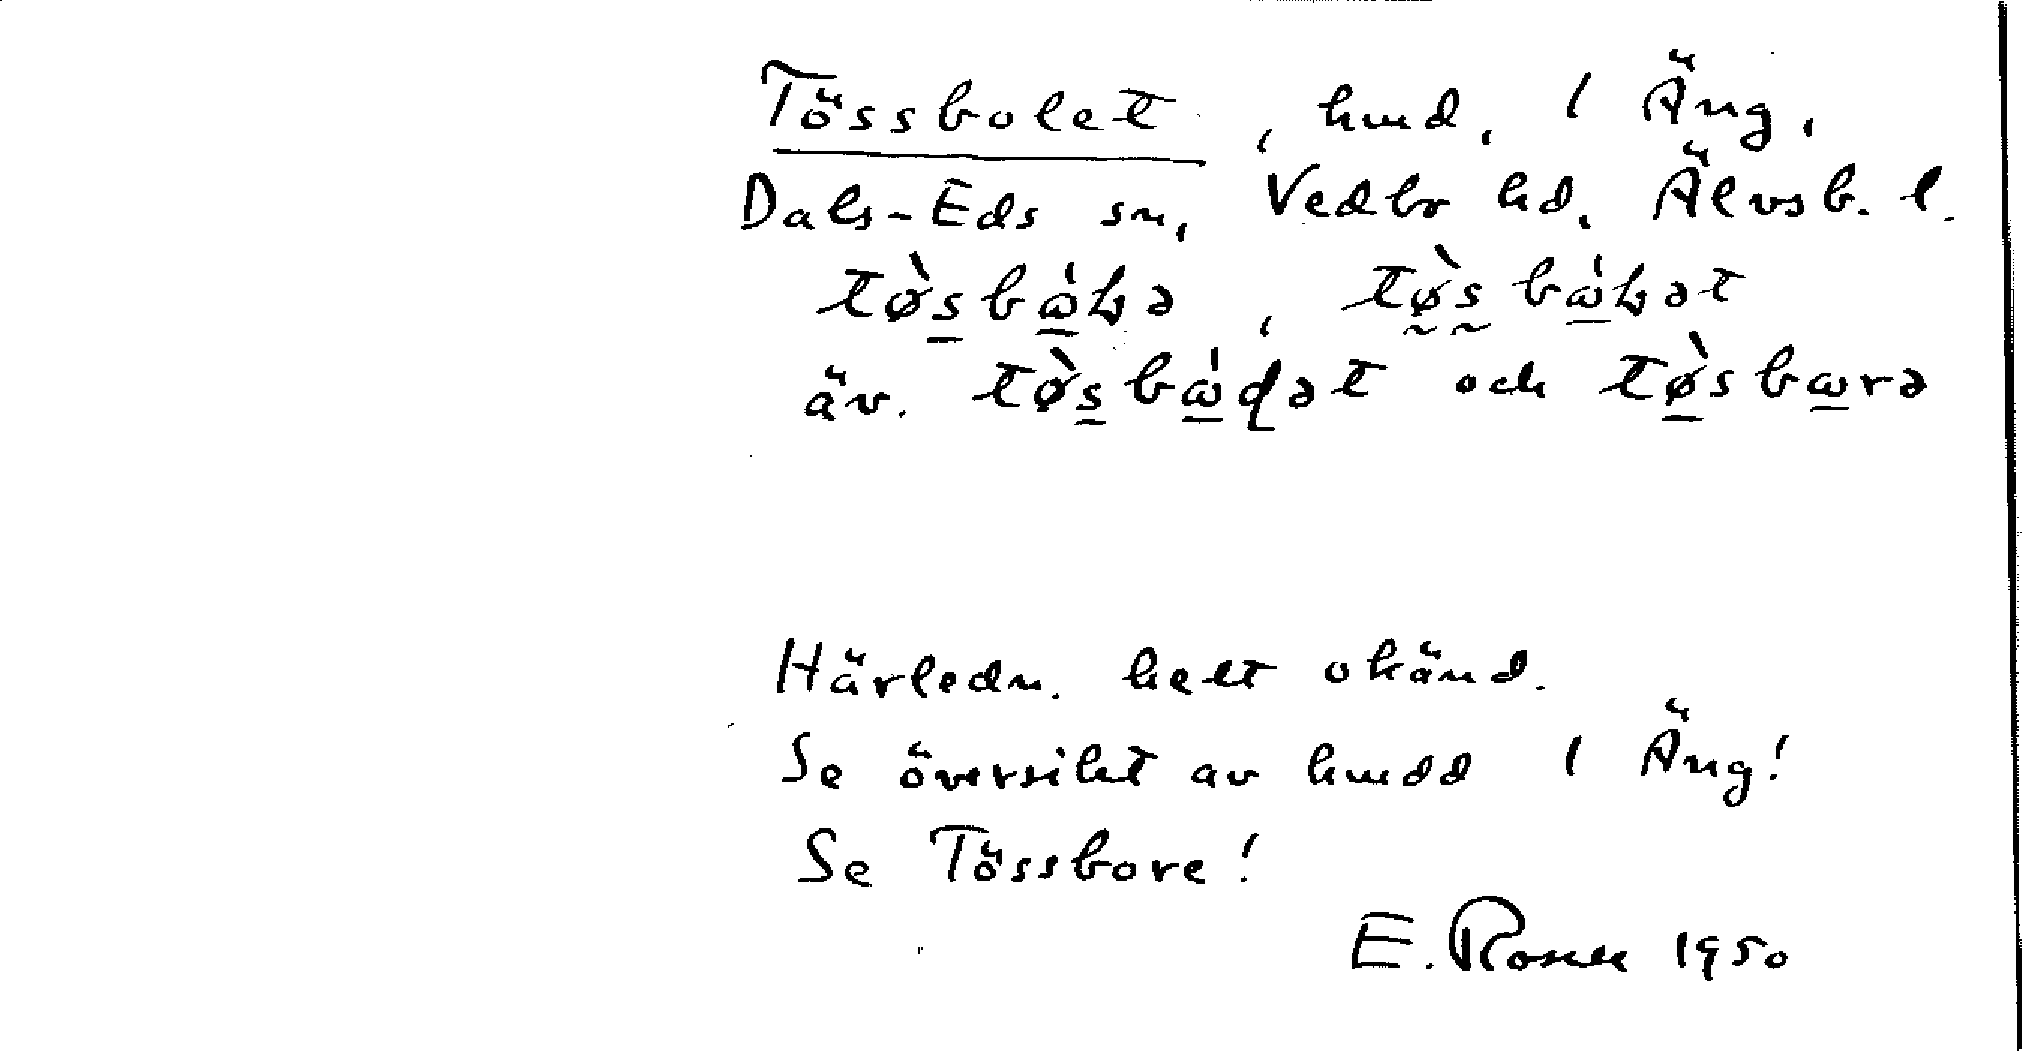 Tössbolet, hmd. i Äng,
Dals-Eds sn, Vedbo hd. Älvsb. l.
tø̀sbω̇ɫə, tø̀sbω̇ɫət
äv. tø̀sbω̇ɖət och tø̀sbωrə
Härledn. helt okänd.
Se översikt av hmdd i Äng!
Se Tössbore!
E. Rosen 1950